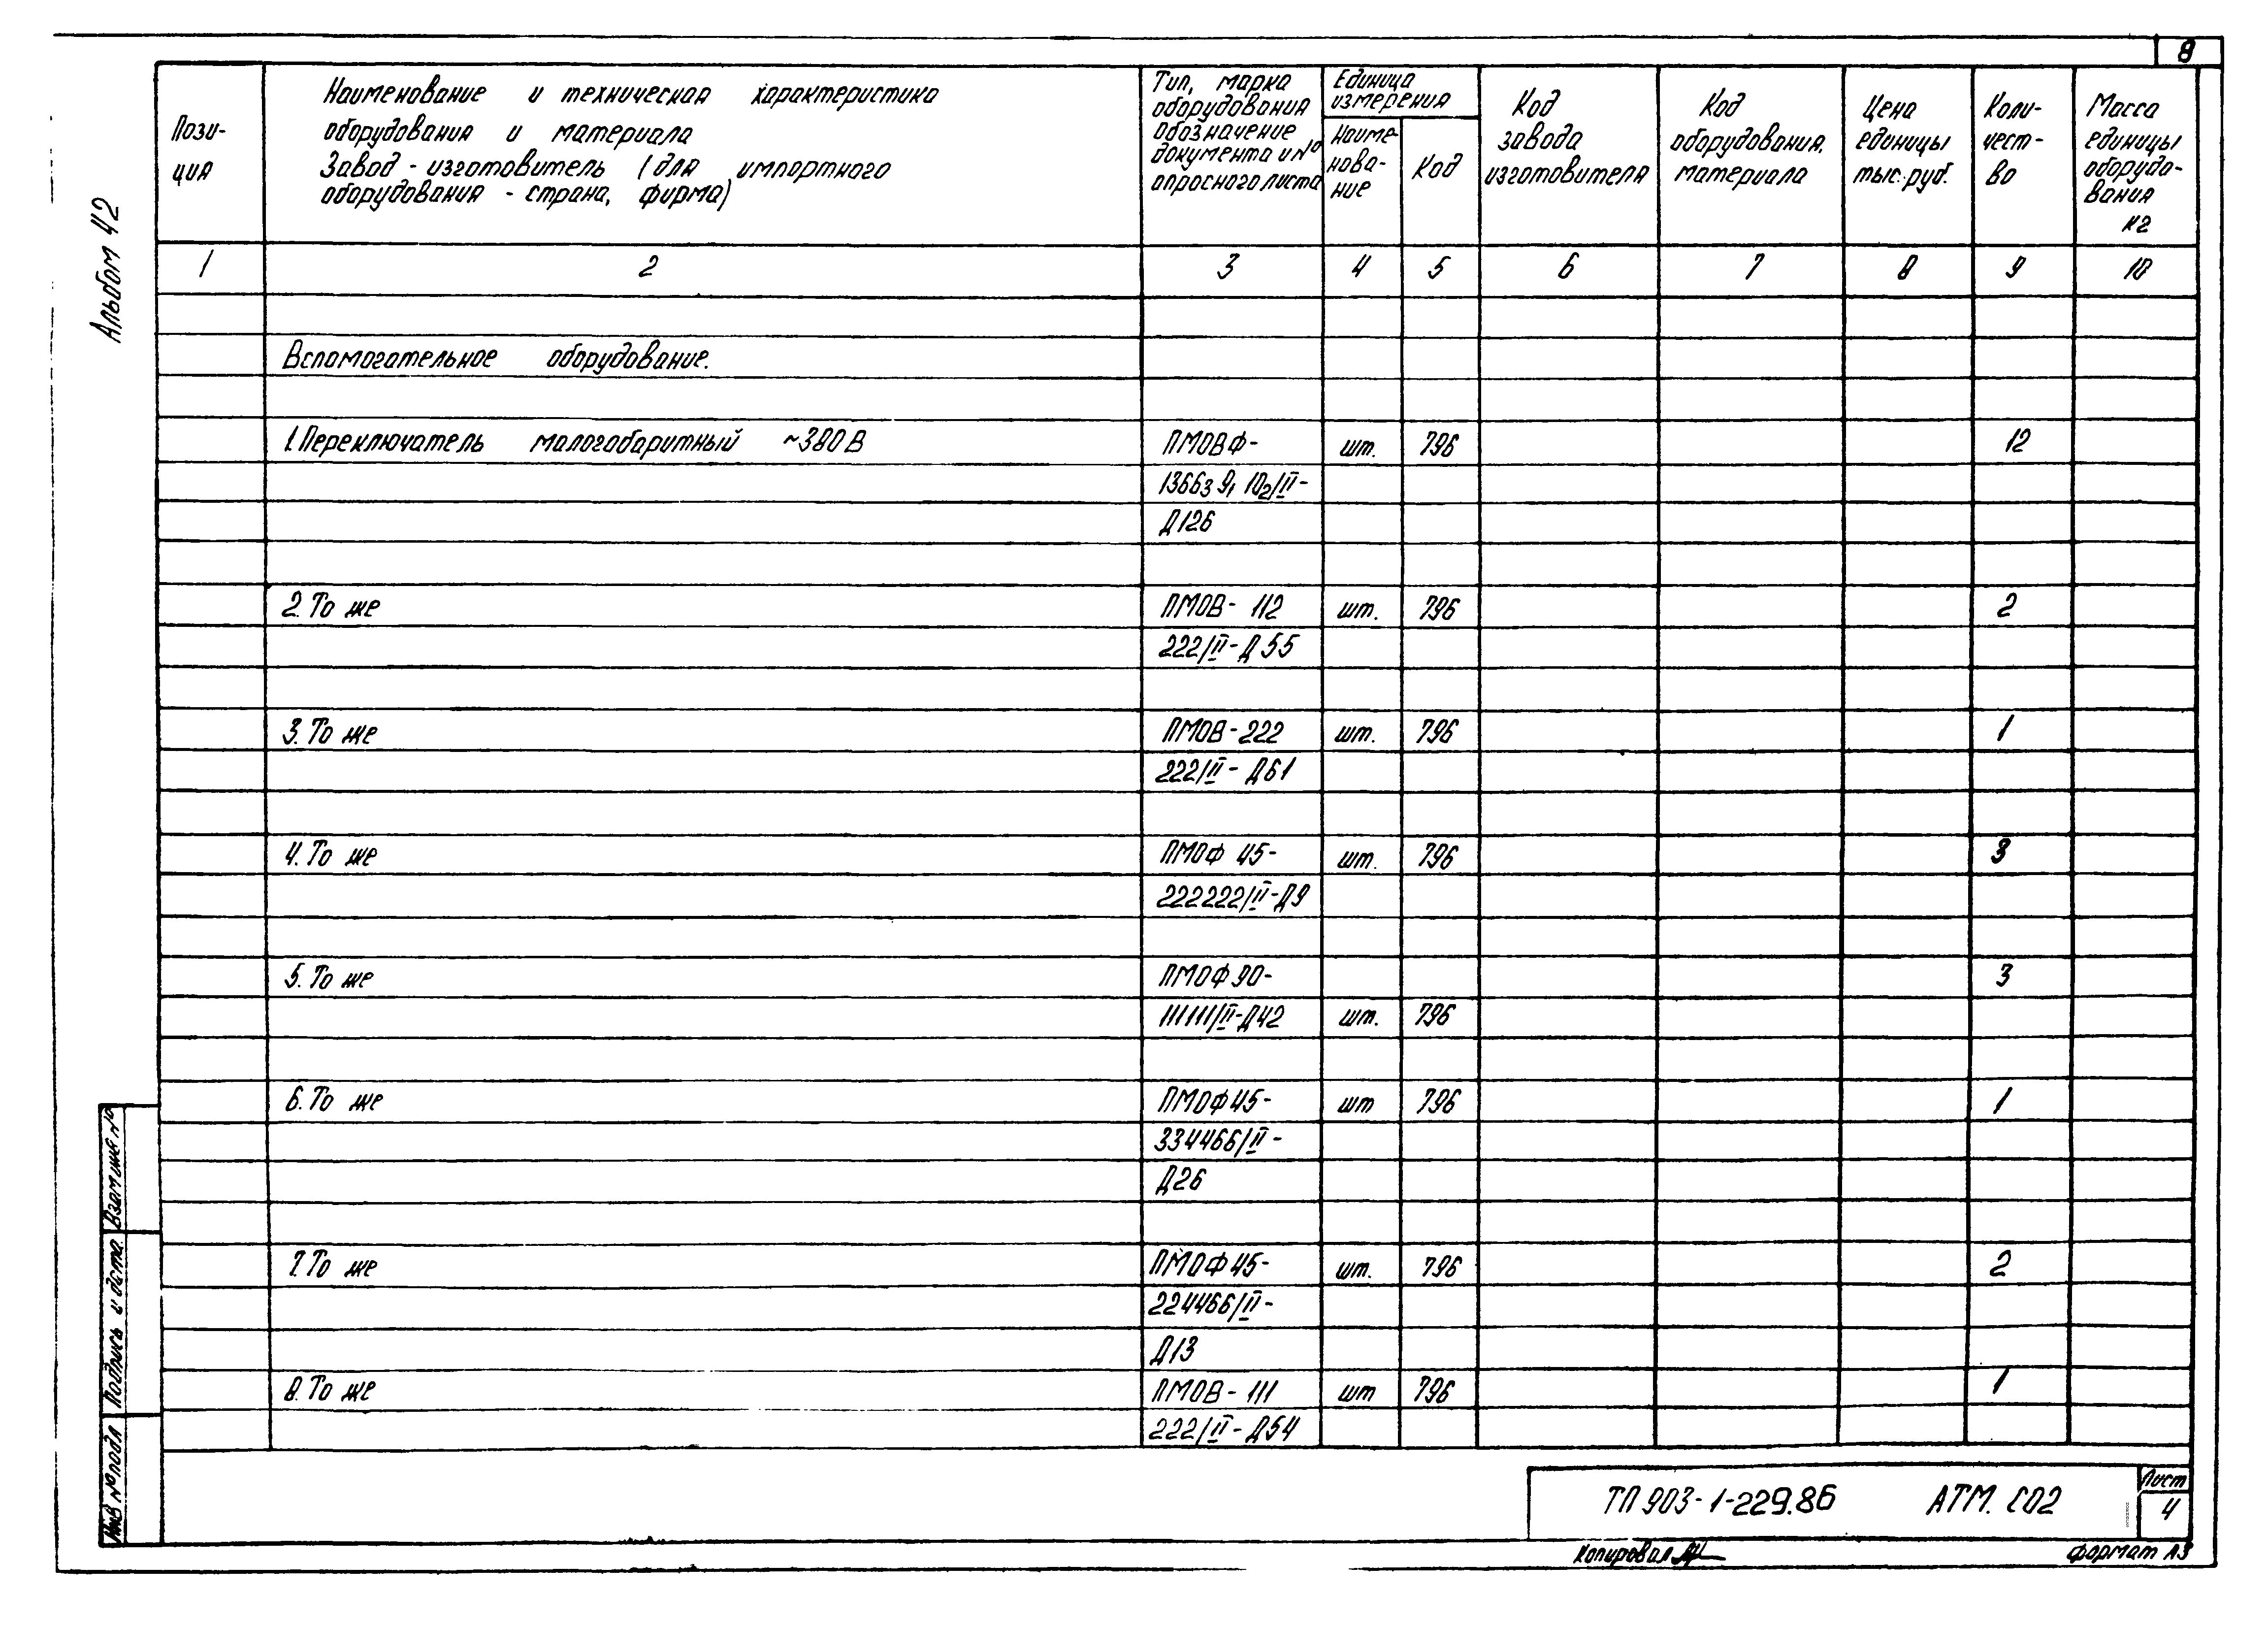 8
Альбом 42
Пози-
ция
Наименование и техническая характеристика
оборудования и материала
Завод - изготовитель (для импортного
оборудования - страна, фирма)
Тип, марка
оборудования
обозначение
документа и №
опросного листа
Единица
измерения
Наиме-
нова-
ние
Код
Код
завода
изготовителя
Код
оборудования,
материала
Цена
единицы
тыс. руб.
Коли-
чест-
во
Масса
единицы
оборудо-
вания
кг
1 2 3 4 5 6 7 8 9 10
Вспомогательное оборудование.
1. Переключатель малогабаритный ~380 В ПМОВФ- шт. 796 12
13663 9₁ 10₂/II-
Д126
2. То же ПМОВ- 112 шт. 796 2
222/II- Д 55
3. То же ПМОВ-222 шт. 796 1
222/II- Д61
4. То же ПМОФ 45- шт. 796 3
222222/II-Д9
5. То же ПМОФ90- 3
111111/II-Д42 шт. 796
6. То же ПМОФ45- шт 796 1
334466/II-
Д26
7. То же ПМОФ45- шт. 796 2
224466/II-
Д13
8. То же ПМОВ- 111 шт 796 1
222/II- Д54
Взам инв №
Подпись и дата
Инв № подл
ТП 903-1-229.86 АТМ. С02
Лист
4
Копировал
формат А3